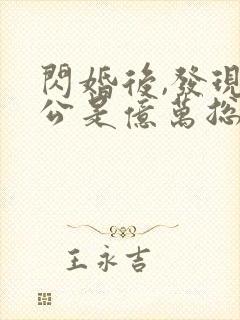 閃婚後,發現
公是億萬總
王永吉